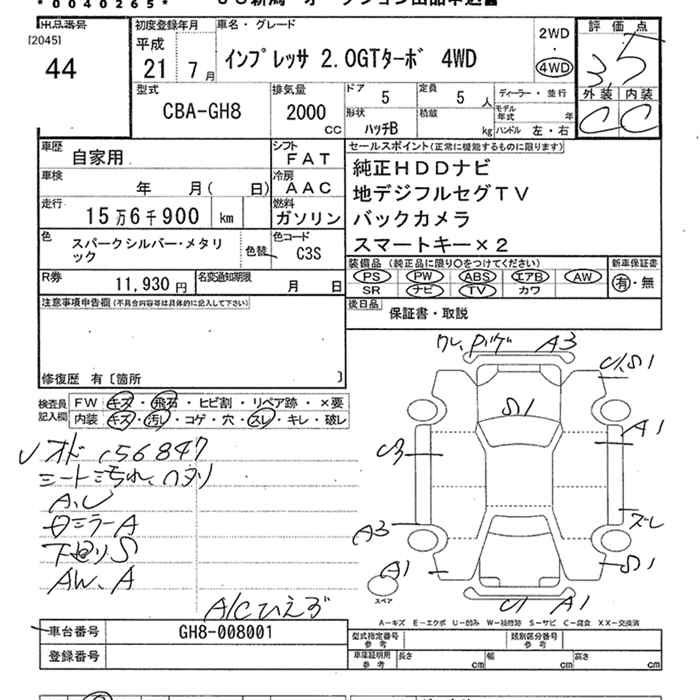 *0040265*
出品番号 初度登録年月 車名・グレード 2WD 評価点
[2045] 平成 インプレッサ 2.0GTターボ 4WD 4WD 3.5
44 21年 7月
外装 内装
C C
型式 排気量 ドア 5 定員 5人 ディーラー・並行
CBA-GH8 2000cc 形状 ハッチB 積載 kg モデル年式 年
ハンドル 左・右
車歴 自家用 シフト FAT セールスポイント(正常に機能するものに限ります)
純正HDDナビ
車検 年 月( 日) 冷房 AAC
地デジフルセグTV
走行 15万6千900 km 燃料 ガソリン バックカメラ
色 スパークシルバー・メタリック 色替 色コード C3S スマートキー×2
装備品(純正品に限り○をつけてください) 新車保証書
PS PW ABS エアB AW 有・無
SR ナビ TV カワ
R券 11,930円 名変通知期限 月 日
後日品 保証書・取説
注意事項申告欄(不具合内容等は具体的に記入して下さい)
修復歴 有[箇所 ]
検査員記入欄 FW キズ・飛石・ヒビ割・リペア跡・×要
内装 キズ・汚レ・コゲ・穴・スレ・キレ・破レ
A3
S1
S1
A1
A3
A1
S1
A1
オド 156847
シート汚れ、ヘタリ
A、U
ミラーA
S
AW、A
A/Cひえず
スペア
A-キズ E-エクボ U-凹み W-補修跡 S-サビ C-腐食 XX-交換済
車台番号 GH8-008001 型式指定番号 参考 類別区分番号 参考
登録番号 車庫証明用 参考 長さ cm 幅 cm 高さ cm